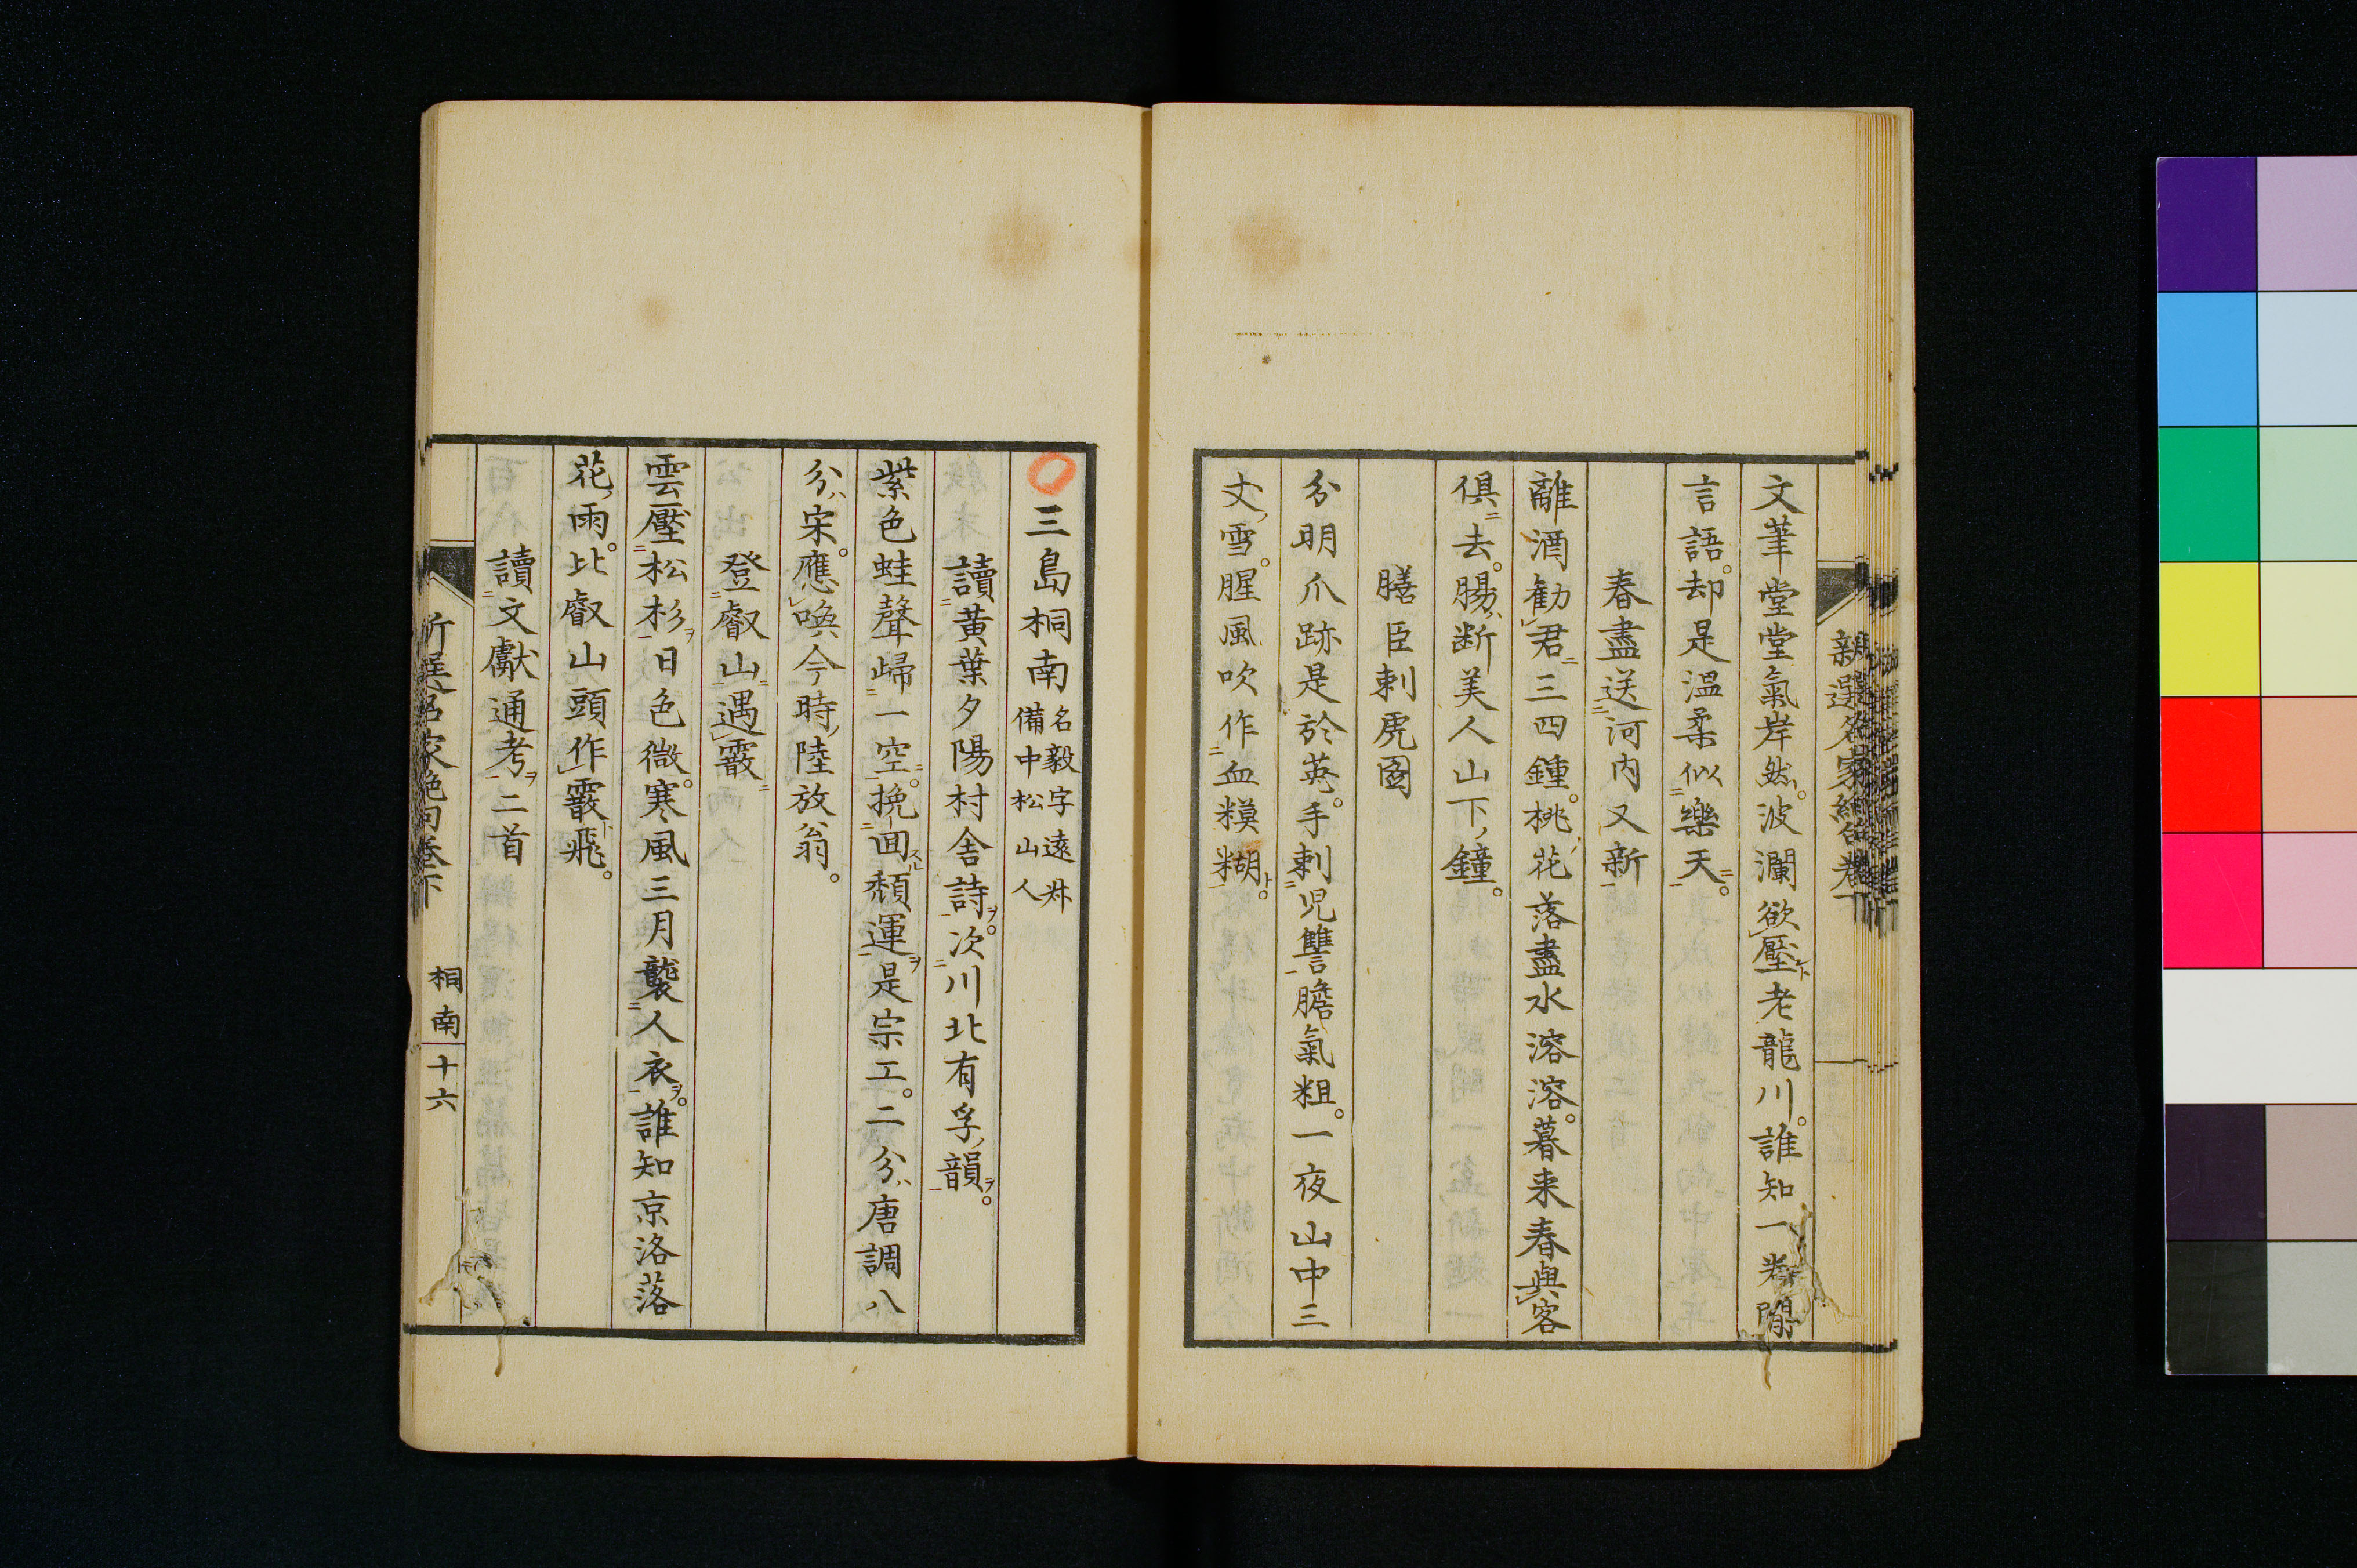 文筆堂堂氣岸然。波瀾欲壓老龍川。誰知一為閒
言語。却是溫柔似樂天。
春盡送河内又新
離酒勧君三四鍾。桃花落盡水溶溶。暮来春與客
俱去。腸断美人山下鐘。
膳臣刺虎圖
分明爪跡是於英。手刺児讐膽氣粗。一夜山中三
丈雪。腥風吹作血糢糊。
三島桐南 名毅字遠叔 備中松山人
讀黄葉夕陽村舎詩。次川北有孚韻。
紫色蛙聲歸一空。挽回頽運是宗工。二分唐調八
分宋。應喚今時陸放翁。
登叡山遇霰
雲壓松杉日色微。寒風三月襲人衣。誰知京洛落
花雨。比叡山頭作霰飛。
讀文獻通考二首
新選名家絶句巻下
桐南
十六